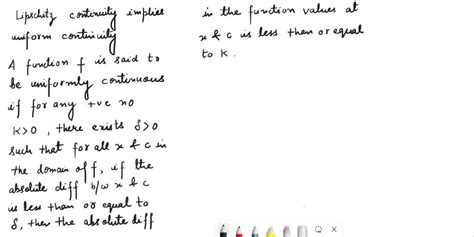 Lipschitz continuity implies
uniform continuity
A function f is said to
be uniformly continuous
if for any +ve no
K>0 , there exists δ>0
such that for all x & c in
the domain of f, if the
absolute diff b/w x & c
is less than or equal to
δ, then the absolute diff
in the function values at
x & c is less than or equal
to K.